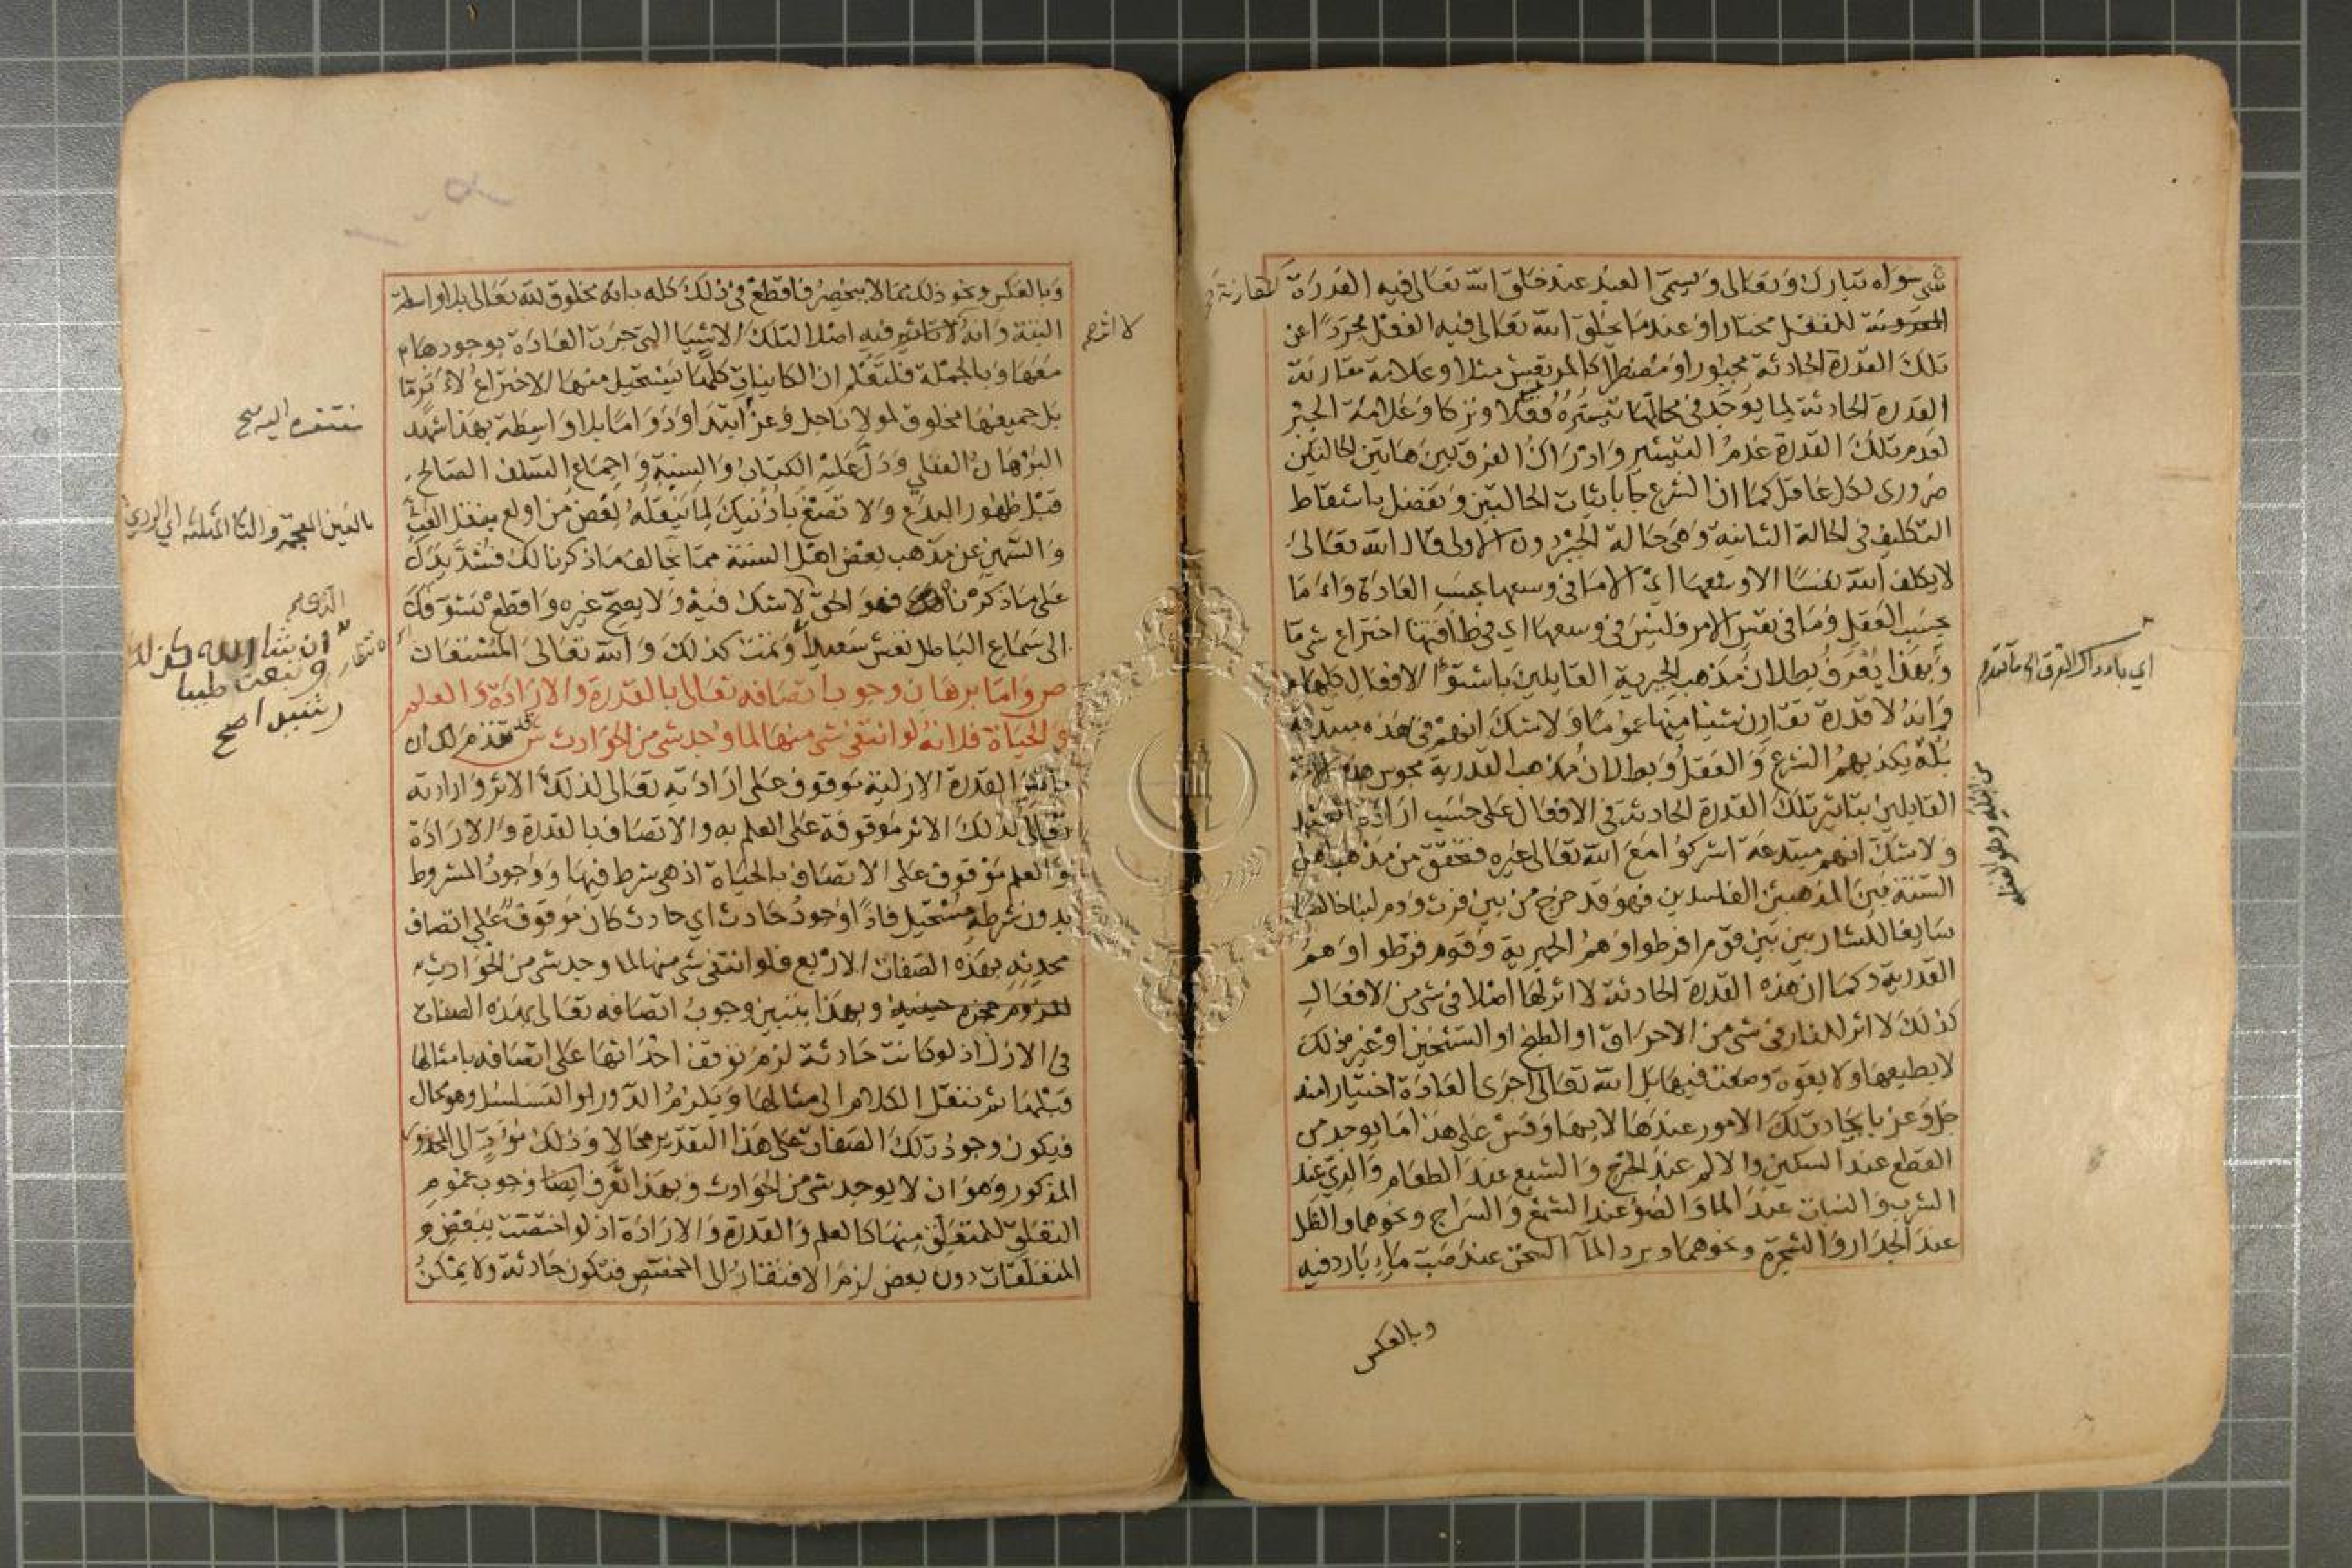 شي سواه تبارك وتعالى ويسمى العبد عند خلق الله تعالى فيه القدرة
المقارنة صح
المقرونة للفعل مختارا وعندما يخلق الله تعالى فيه الفعل مجردا عن
تلك القدرة الحادثة مجبورا ومضطرا كالمرتعش مثلا وعلامة مقارنة
القدرة الحادثة لما يوجد في محالها تيسره فعلا وتركا وعلامة الجبر
لعدم تلك القدرة عدم التيسير وادراك الفرق بين هاتين الحالتين
ضروري لكل عاقل كما ان الشرع جا باثبات الحالتين وتفضل باسقاط
التكليف في الحالة الثانية وهي حالة الجبر دون الاولى قال الله تعالى
لا يكلف الله نفسا الا وسعها اي الا ما في وسعها بحسب العادة واما
بحسب العقل وما في نفس الامر فليس في وسعها اي في طاقتها اختراع شي ما
وبهذا يعرف بطلان مذهب الجبرية القايلين باستوا الافعال كلها
اي بادراك الفرق الى ما تقدم
وانه لا قدرة تقارن شيا منها عموما ولا شك انهم في هذه مبتدعة
بله يكذبهم الشرع والعقل وبطلان مذهب القدرية مجوس هذه الامة
القايلين بتاثير تلك القدرة الحادثة في الافعال على حسب ارادة العبد
ولا شك انهم مبتدعة اشركوا مع الله تعالى غيره فتحقق من مذهب اهل
السنة بين المذهبين الفاسدين فهو قد خرج من بين فرث ودم لبنا خالصا
سايغا للشاربين بين قوم افرطوا وهم الجبرية وقوم فرطوا وهم
القدرية وكما ان هذه القدرة الحادثة لا اثر لها اصلا في شي من الافعال
كذلك لا اثر للنار في شي من الاحراق او الطبخ او التسخين او غير ذلك
لا بطبعها ولا بقوة وضعت فيها بل الله تعالى اجرى العادة اختيارا منه
جل وعز بايجاد تلك الامور عندها لا بها وقس على هذا ما يوجد من
القطع عند السكين والالم عند الجرح والشبع عند الطعام والري عند
الشرب والنبات عند الما والضو عند الشمع والسراج ونحوهما والظل
عند الجدار والشجرة ونحوهما وبرد الما السخن عند صب ماء بارد فيه
وبالعكس
وبالعكس ونحو ذلك مما لا ينحصر فاقطع في ذلك كله بانه مخلوق لله تعالى بلا واسطة
البتة وانه لا تاثير فيه اصلا لتلك الاشيا التي جرت العادة بوجودها
لا اثر صح
معها وبالجملة فلتعلم ان الكاينات كلها يستحيل منها الاختراع لاثر ما
بل جميعها مخلوق لمولانا جل وعز ابتدا ودواما بلا واسطة بهذا شهد
مفتقرة اليه صح
البرهان العقلي ودل عليه الكتاب والسنة واجماع السلف الصالح
قبل ظهور البدع ولا تصغ باذنيك لما ينقله بعض من اولع بنقل الغث
بالغين المعجمة والثا المثلثة اي الردي
والسمين عن مذهب بعض اهل السنة مما يخالف ما ذكرنا لك فشد يدك
على ما ذكرناه لك فهو الحق لا شك فيه ولا يصح غيره واقطع تشوفك
الى سماع الباطل تعش سعيدا وتمت كذلك والله تعالى المستعان
ان شا الله
طيبا
ص واما برهان وجوب اتصافه تعالى بالقدرة والارادة والعلم
والحياة فلانه لو انتفى شي منها لما وجد شي من الحوادث ش قد تقدم لك ان
تاثير القدرة الازلية موقوف على ارادته تعالى لذلك الاثر وارادته
تعالى لذلك الاثر موقوفة على العلم به والاتصاف بالقدرة والارادة
والعلم موقوف على الاتصاف بالحياة اذ هي شرط فيها ووجود المشروط
بدون شرطه مستحيل فاذا وجود حادث اي حادث كان موقوف على اتصاف
محدثه بهذه الصفات الاربع فلو انتفى شي منها لما وجد شي من الحوادث
للزوم عجزه حينيذ وبهذا يتبين وجوب اتصافه تعالى بهذه الصفات
في الازل اذ لو كانت حادثة لزم توقف احداثها على اتصافه بامثالها
قبلها ثم ننقل الكلام الى مثالها ويلزم الدور او التسلسل وهو محال
فيكون وجود تلك الصفات على هذا التقدير محالا وذلك مؤد الى المحذور
المذكور وهو ان لا يوجد شي من الحوادث وبهذا تعرف ايضا وجوب عموم
التعلق للمتعلق منها كالعلم والقدرة والارادة اذ لو اختصت ببعض
المتعلقات دون بعض لزم الافتقار الى المخصص فتكون حادثة ولا يمكن